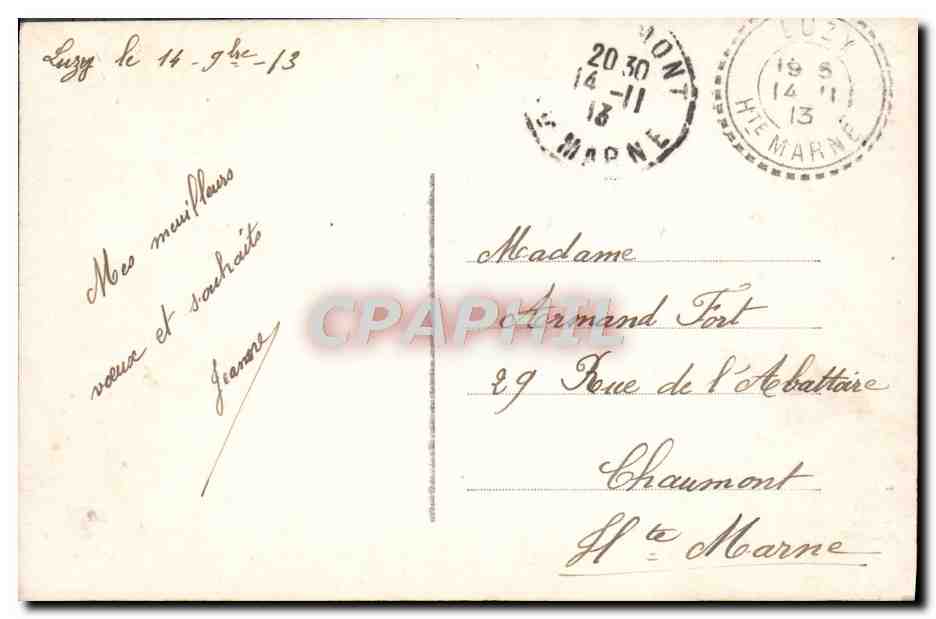 Luzy le 14-9bre-13
MONT
20 30
14 -11
13
MARNE
LUZY
19
14 -11
13
HTE MARNE
Mes meuilleurs
vœux et souhaits
Jeanne
Madame
Armand Fort
29 Rue de l'Abattoire
Chaumont
Hte Marne
CPAPHIL